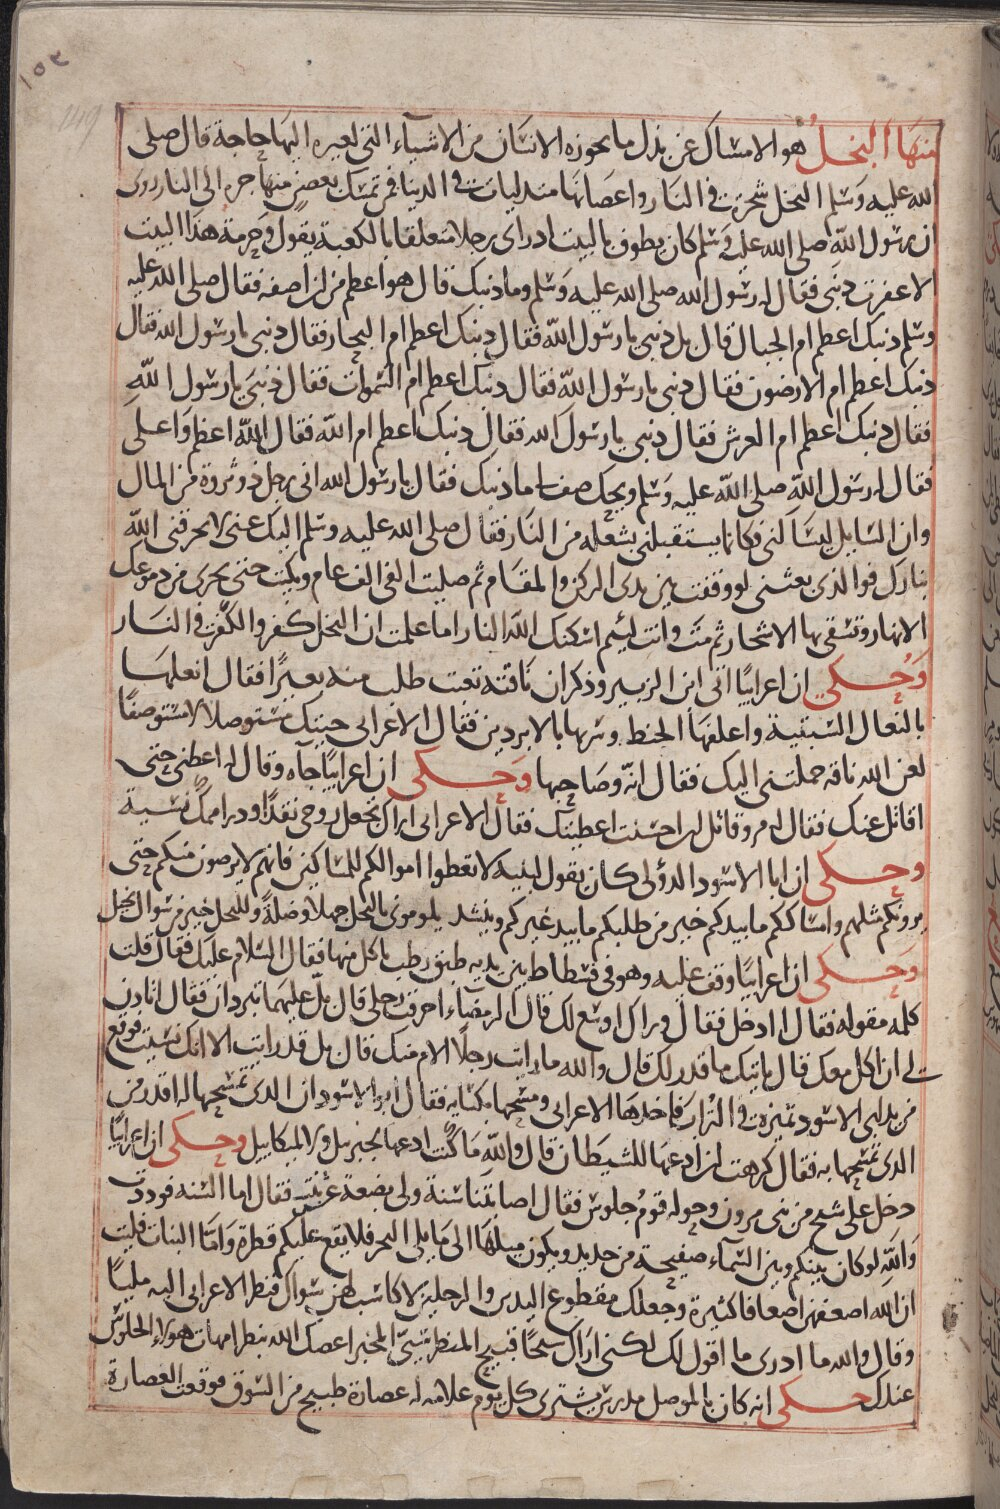 ١٥٣
149
منها البخل هو الامساك عن بذل ما يحوزه الانسان من الاشياء التي لغيره اليها حاجة قال صلى
الله عليه وسلم البخل شجرة في النار واغصانها متدليات في الدنيا فمن تمسك بغصن منها جره الى النار روى
ان رسول الله صلى الله عليه وسلم كان يطوف بالبيت اذ راى رجلا متعلقا بالكعبة يقول وحرمة هذا البيت
الا غفرت ذنبي فقال له رسول الله صلى الله عليه وسلم وما ذنبك قال هو اعظم من ان اصفه فقال صلى الله عليه
وسلم ذنبك اعظم ام الجبال قال بل ذنبي يا رسول الله فقال ذنبك اعظم ام البحار فقال ذنبي يا رسول الله فقال
ذنبك اعظم ام الارضون فقال ذنبي يا رسول الله فقال ذنبك اعظم ام السموات فقال ذنبي يا رسول الله
فقال ذنبك اعظم ام العرش فقال ذنبي يا رسول الله فقال ذنبك اعظم ام الله فقال الله اعظم واعلى
فقال له رسول الله صلى الله عليه وسلم ويحك صف لنا ما ذنبك فقال يا رسول الله اني رجل ذو ثروة من المال
وان السايل ليسالني فكانما يستقبلني بشعلة من النار فقال صلى الله عليه وسلم اليك عني لا تحرقني الله
بنارك فوالذي بعثني لو وقفت بين يدي الركن والمقام ثم صليت الفي الف عام وبكيت حتى يجري من دموعك
الانهار وتسقي بها الاشجار ثم مت وانت لئيم اسكنك الله النار اما علمت ان البخل كفر والكفر في النار
وحكي ان اعرابيا اتى ابن الزبير وذكر ان ناقته نقبت طلب منه بعيرا فقال انعلها
بالنعال السبتية واعلفها الحنط وسر بها بالابردين فقال الاعرابي جيتك مستوصلا لا مستوصفا
لعن الله ناقة حملتني اليك فقال انه وصاحبها وحكي ان اعرابيا جاه وقال له اعطني حتى
اقاتل عنك فقال له مر وقاتل ان احسنت اعطيتك فقال الاعرابي اراك تجعل روحي نقدا ودراهمك نسية
وحكي ان ابا الاسود الدؤلي كان يقول لبنيه لا تعطوا اموالكم للمساكين فانهم لا يرضون منكم حتى
يرونكم مثلهم وامساككم ما بيدكم خير من طلبكم ما بيد غيركم وينشد يلومونني بالبخل جهلا وضلة وللبخل خير من سوال بخيل
وحكي ان اعرابيا وقف عليه وهو في فسطاط بين يديه طبق رطب ياكل منها فقال السلام عليك فقال قلت
كلمة مقولة فقال اادخل فقال وراك اوسع لك قال الرمضاء احرقت رجلي قال بل عليهما تبردان فقال اتاذن
لي ان اكل معك قال ياتيك ما قدر لك قال والله ما رايت رجلا الام منك قال بل قد رايت الا انك نسيت فوقع
من يد ابي الاسود تميرة في التراب فاخذها الاعرابي ومسحها بكسايه فقال ابو الاسود ان الذي تمسحها له اقذر من
الذي تمسحها به فقال كرهت ان ادعها للشيطان قال والله ما كنت ادعها لجبريل ولا لميكاييل وحكي ان اعرابيا
دخل على شيخ من بني مروان وحوله قوم جلوس فقال اصابتنا سنة ولي بضعة عشر بنت فقال اما السنة فوددت
والله لو كان بينكم وبين السماء صفيحة من حديد ويكون مسيلها الى ما يلي البحر فلا يقع عليكم قطرة واما البنات فليت
ان الله اضعفهن اضعافا كثيرة وجعلك مقطوع اليدين والرجلين لا كاسب لهن سواك فنظر الاعرابي اليه مليا
وقال والله ما ادري ما اقول لك لكني اراك شيخا قبيح المنظر سيئ المخبر اعضك الله ببظر امهات هولاء الجلوس
عندك حكي انه كان بالموصل مدرس يشتري كل يوم غلامه له عصارة طبيخ من السوق فوقعت العصارة